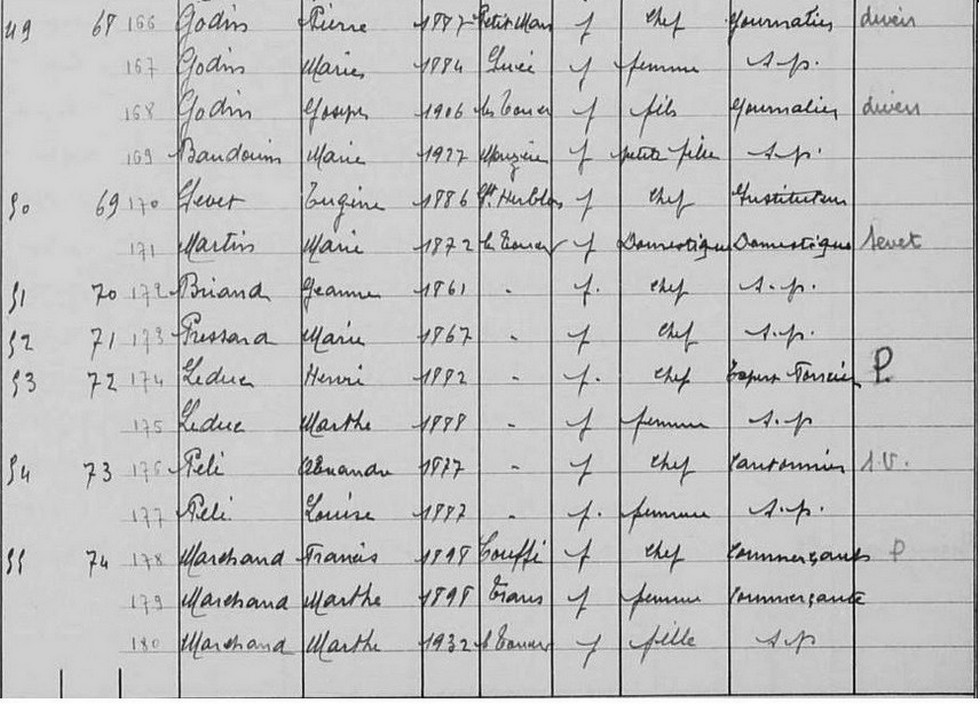 49 68 166 Godin Pierre 1887 Petit Mars f chef Journalier divers
167 Godin Marie 1884 Ligné f femme s.p.
168 Godin Joseph 1906 les Touches f fils Journalier divers
169 Baudouin Marie 1927 Mouzeil f petite fille s.p.
50 69 170 Levet Eugène 1886 St. Herblon f chef Instituteur
171 Martin Marie 1872 les Touches f Domestique Domestique Levet
51 70 172 Briand Jeanne 1861 - f. chef s.p.
52 71 173 Pressard Marie 1867 - f chef s.p.
53 72 174 Leduc Henri 1892 - f. chef Expert Foncier P.
175 Leduc Marthe 1898 - f femme s.p
54 73 176 Peli 1877 - f chef Cantonnier S.V.
177 Peli Louise 1887 - f. femme s.p.
55 74 178 Marchand Francis 1898 Couffé f chef Commerçant P
179 Marchand Marthe 1898 Trans f femme Commerçante
180 Marchand Marthe 1932 les Touches f fille s.p